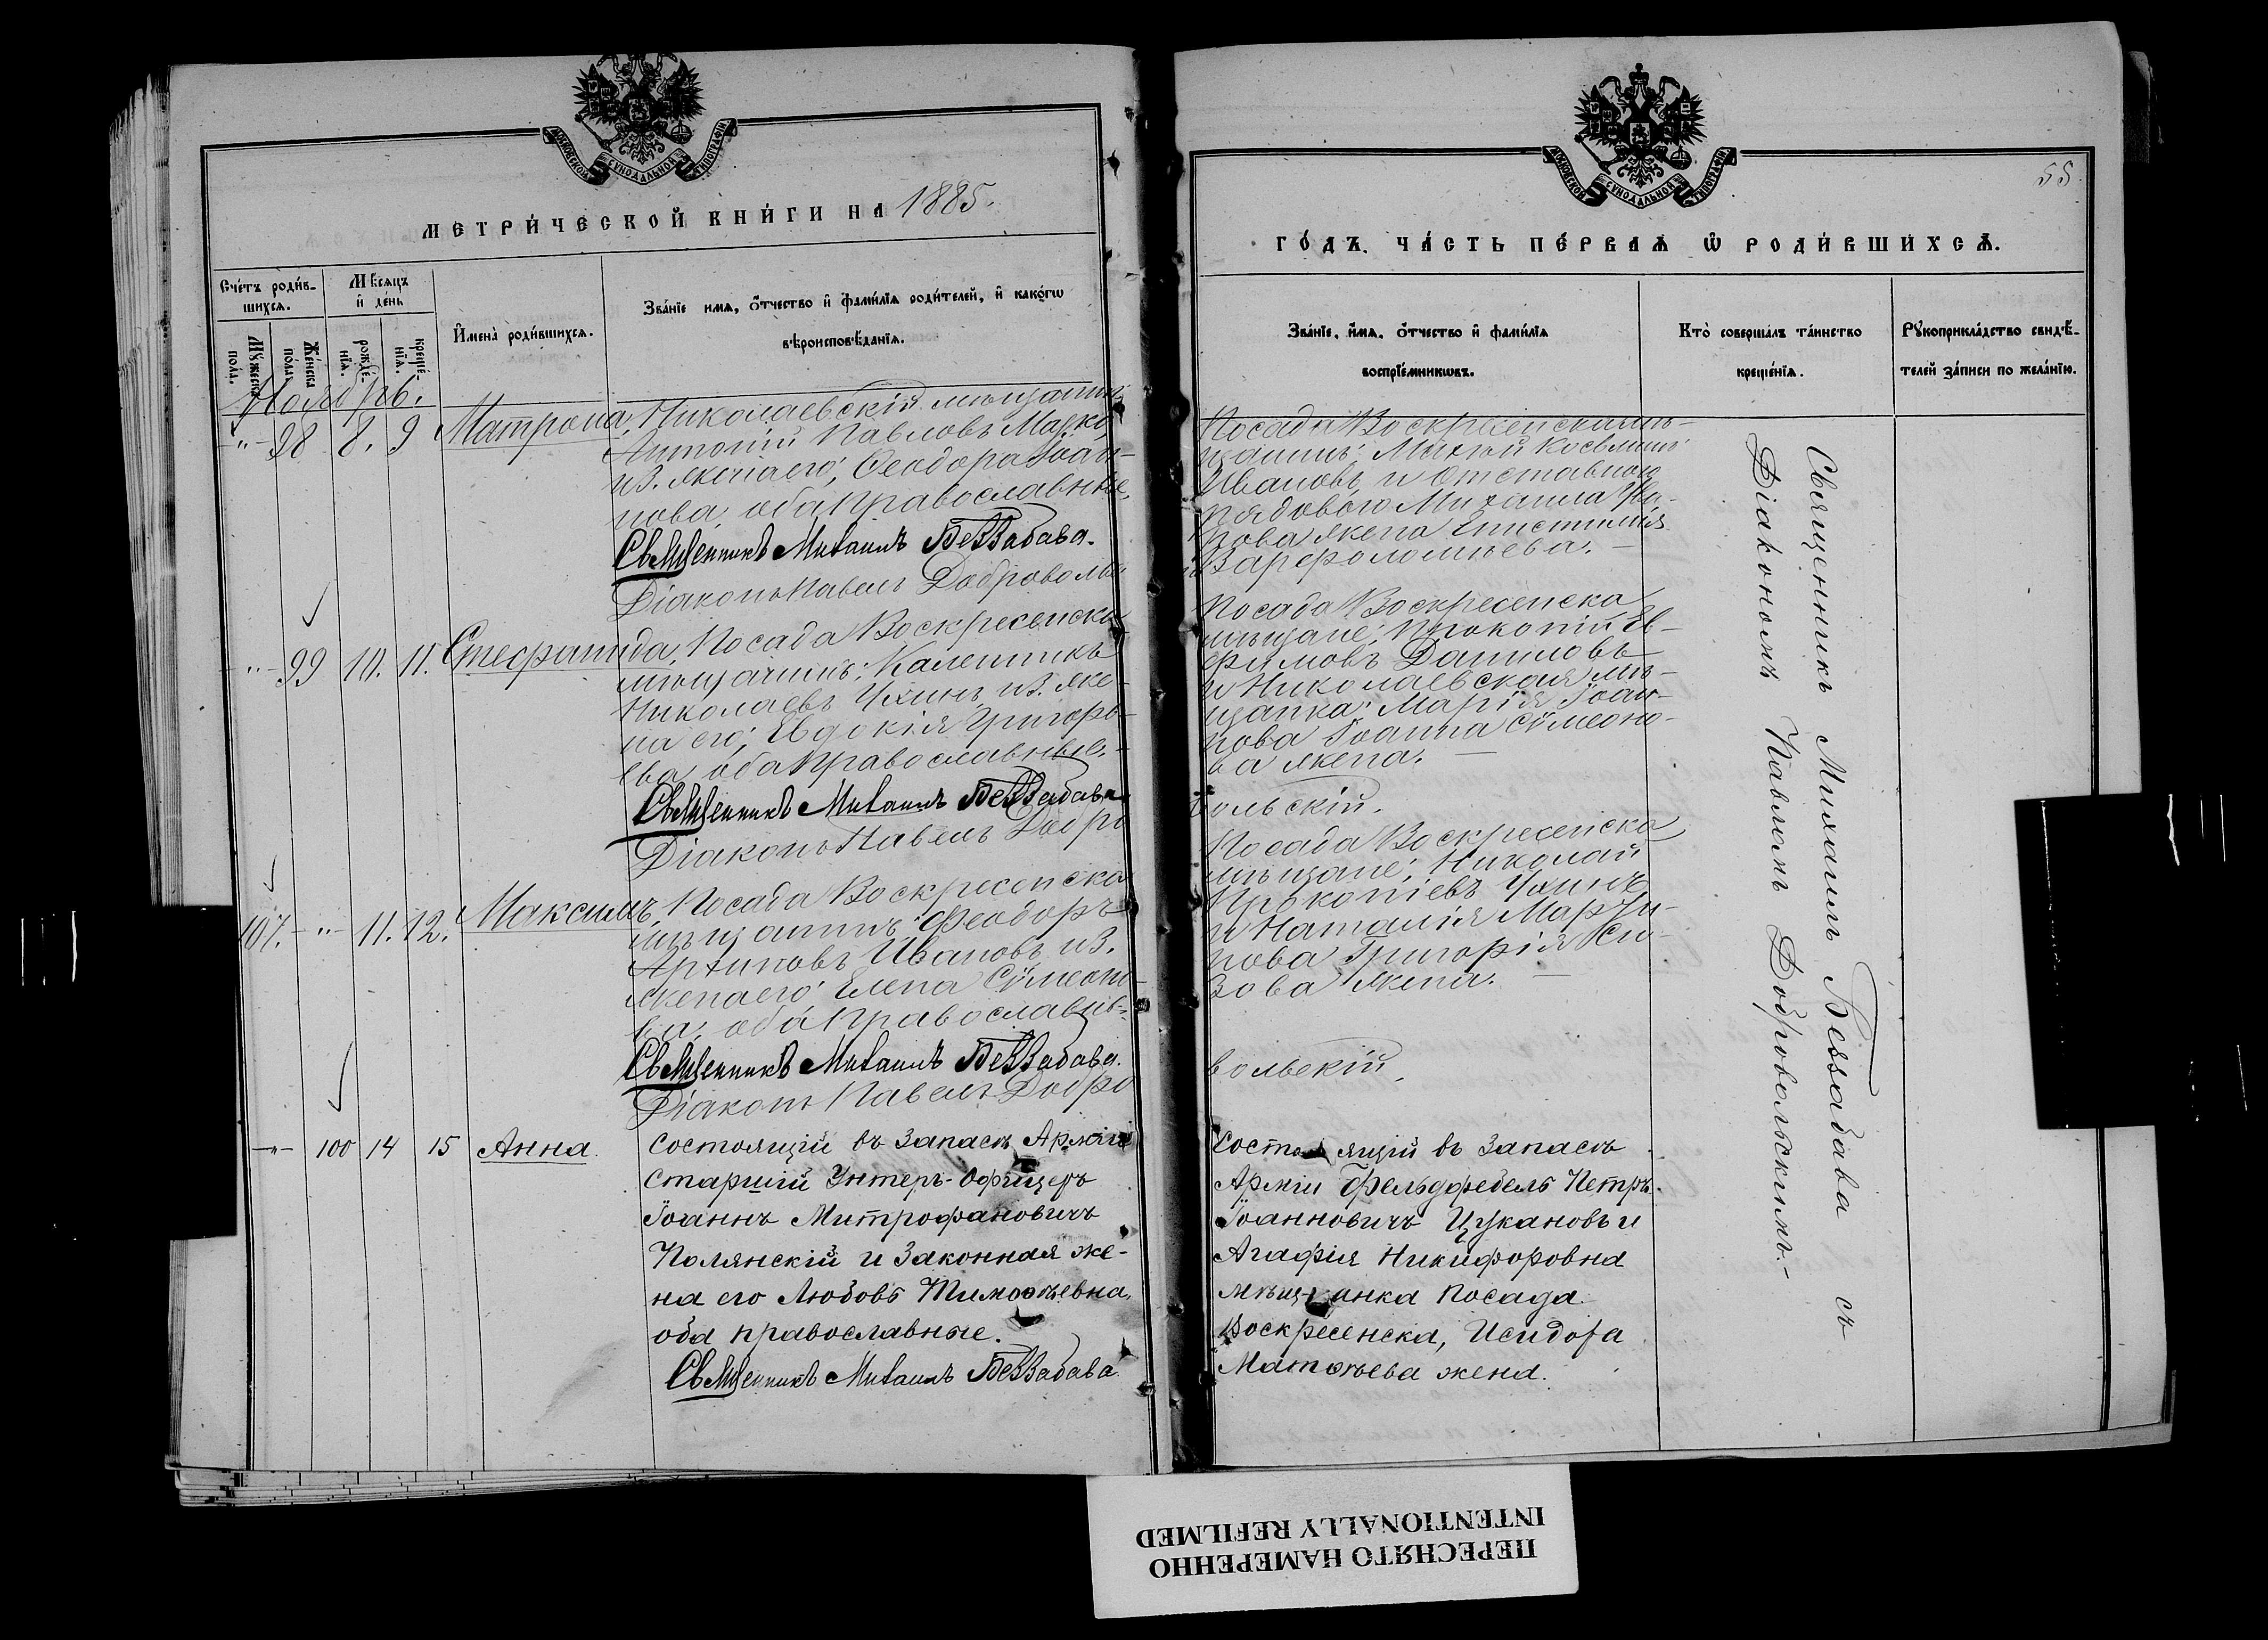 МОСКОВСКОЙ СУНОДАЛЬНОЙ ТИПОГРАФІИ
МЕТРИ́ЧЕСКОЙ КНИ́ГИ НА 1885.
Сче́тъ роди́в-
шихсѧ.
Мꙋ́жеска
по́ла.
Же́нска
по́ла.
Мѣ́сѧцъ
и҆ де́нь
рожде́-
нїѧ.
креще́-
нїѧ.
И҆мена̀ роди́вшихсѧ.
Зва́нїе имѧ, ѻ҆́тчество и҆ фами́лїѧ роди́телей, и҆ како́гѡ
вѣроисповѣ́данїѧ.
Ноябрь.
-"- 98 8. 9 Матрона,
Николаевскій мѣщанинъ
Антоній Павловъ Марко,
из. жена его; Ѳеодора Іоан-
нова, оба православные.
Священникъ Михаилъ Беззабава.
Діаконъ Павелъ Доброволь
-"- 99 10. 11.
Посада Воскресенска
мѣщанинъ; Калинникъ
Николаевъ Ухинъ, из. же-
на его; Евдокія Григорь-
ева, оба православные.
Священникъ Михаилъ Беззабава
Діаконъ Павелъ Добро
107. -"- 11. 12. Максимъ,
Посада Воскресенска
мѣщанинъ Феодоръ
Ивановъ, из.
жена его; Елена Сѵмеоно-
ва; оба православны.
Священникъ Михаилъ Беззабава.
Діаконъ Павелъ Добро
-"- 100 14 15 Анна.
Состоящій въ запасѣ Арміи
Старшій Унтеръ-Офицеръ
Іоаннъ Митрофановичъ
Полянскій и Законная же-
на его Любовь Тимоѳѣевна,
оба православные.
Священникъ Михаилъ Беззабава
МОСКОВСКОЙ СУНОДАЛЬНОЙ ТИПОГРАФІИ
55.
ГО́ДЪ. ЧА́СТЬ ПЕ́РВАѦ Ѡ҆ РОДИ́ВШИХСѦ.
Зва́нїе, и҆́мѧ, ѻ҆́тчество и҆ фами́лїѧ
воспрїе́мникѡвъ.
Кто̀ соверша́лъ та́инство
креще́нїѧ.
Рꙋкоприкла́дство свидѣ́-
телей за́писи по жела́нїю.
Посада Воскресенска мѣ-
щанинъ;
Ивановъ, и Отставного
рядового Михаила
жена Епистимія
Варѳоломѣева. —
Посада Воскресенска
мѣщане; Прокопій Ев-
фимовъ Даниловъ
и Николаевская мѣ-
щанка; Марія Іоан-
нова Іоанна Сѵмеоно-
ва жена. —
вольскій.
Посада Воскресенска
мѣщане; Николай
Прокопіевъ Ухинъ
и Наталія Марти-
нова Григорія
жена. —
вольскій.
Состоящій въ Запасѣ
Арміи Фельдфебель Петръ
Іоанновичъ Цукановъ и
Агафія Никифоровна
мѣщанка Посада
Воскресенска, Исидора
Матѳѣева жена.
Священникъ Михаилъ Беззабава съ
Діакономъ Павломъ Добровольскимъ.-
ПЕРЕСНЯТО НАМЕРЕННО
INTENTIONALLY REFILMED